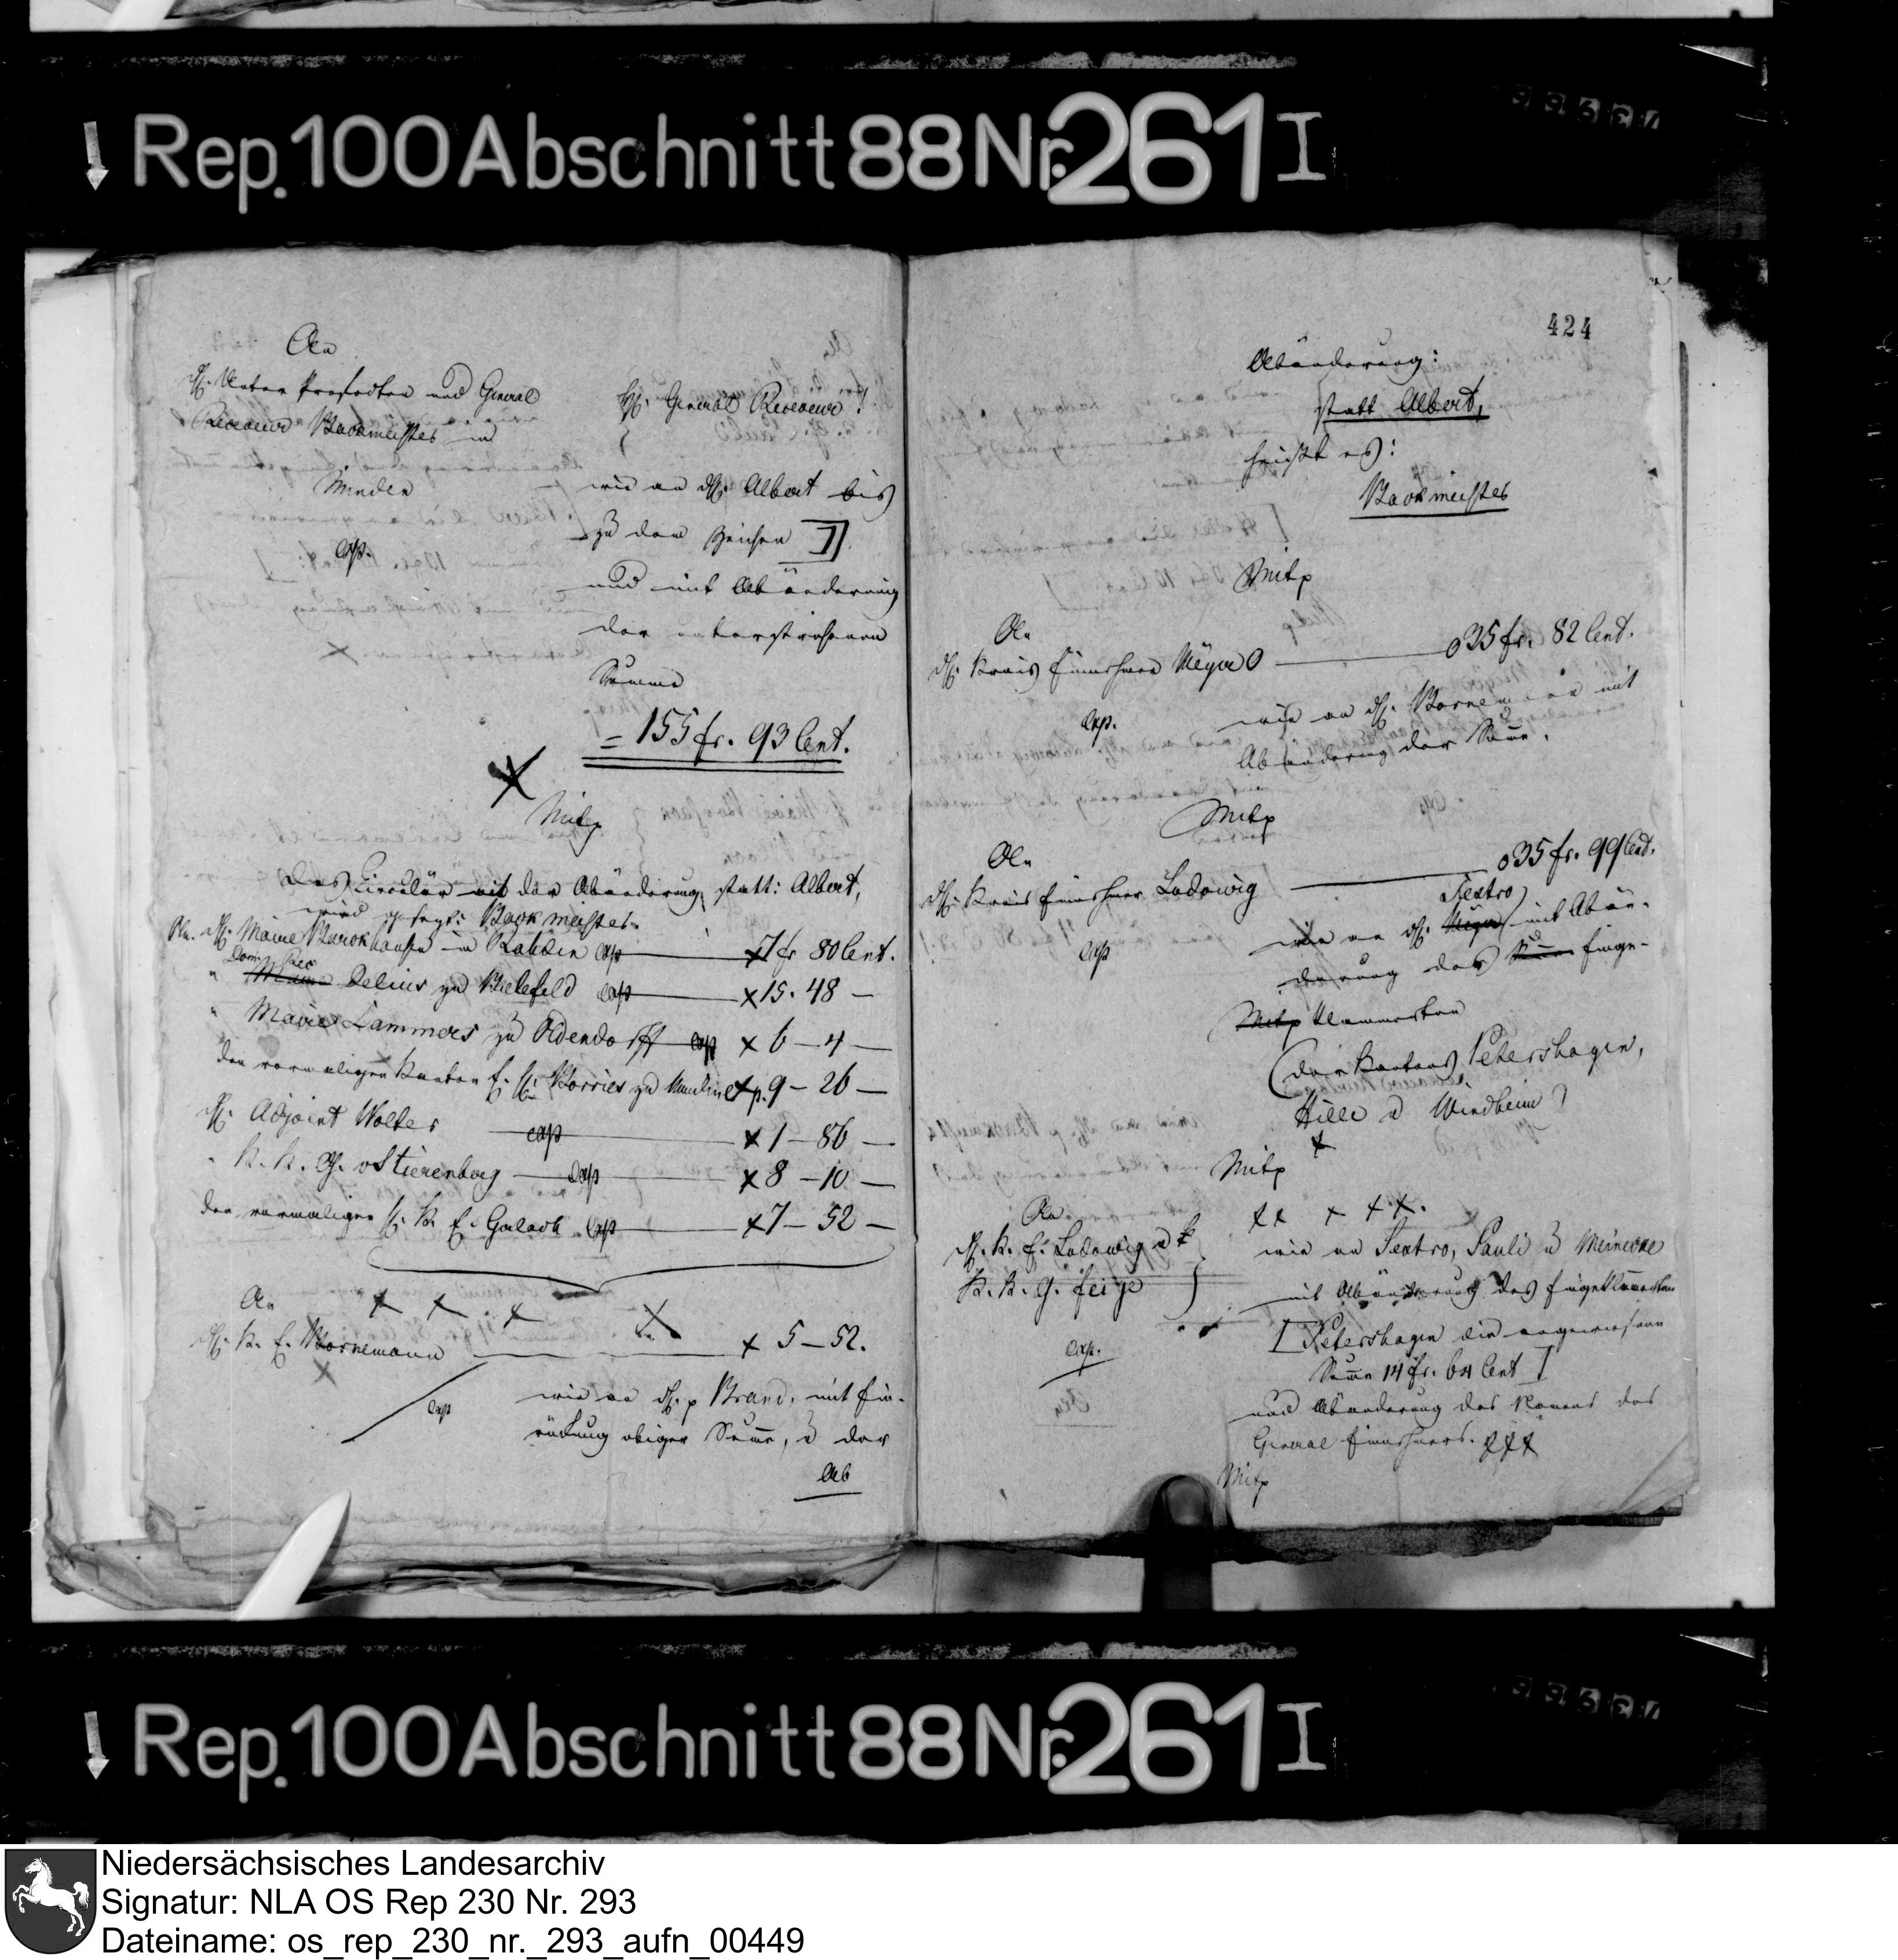 Rep. 100 Abschnitt 88 Nr. 261 I
An
H. Unter Praefecten und General
Receveur Backmeister in
Minden
exp.
H. General Receveur!
wie an H. Albert bis
zu dem Zeichen ]
und mit Abänderung
der unterstrichenen
Summe
= 155 fr. 93 Cent.
Das Circulär mit der Abänderung, statt: Albert,
wird gesagt: Backmeister.
An H. Maire Barckhausen in Rahden exp 7 fr 80 Cent.
" Maire Delius zu Bielefeld exp x 15. 48 —
" Maire Lammers zu Oldendorff exp x 6 — 4 —
den vormaligen Kanton E. H. Borries zu exp. 9 — 26 —
H. Adjoint Wolter exp x 1 — 86 —
" K. K. exp x 8 — 10 —
den vormaligen H. K. E. exp x 7 — 52 —
An
H. K. E. Bornemann x 5 — 52.
exp
wie an H. p Brand, mit Ein-
rückung obiger Summe, u der
Ab
424
Abänderung:
statt Albert,
heißt es:
Backmeister
An
H. Kreis Einnehmer Meyer 35 fr. 82 Cent.
exp.
wie an H. Bornemann mit
Abänderung der Summe.
An
H. Kreis Einnehmer Ludowig 35 fr. 99 Cent.
exp
Sextro
wie an H. Meyer mit Abän-
derung des Einge-
Klammerten
(die Kantons Petershagen,
Hille u Windheim)
An
H. K. E. Ludowig u
K. K. E. Feige
exp.
wie an Sextro, Pauli u Meinecke
mit Abänderung des Eingeklammerten
[Petershagen die angewiesene
Summe 14 fr. 64 Cent]
und Abänderung des Namens des
General Einnehmers.
Rep. 100 Abschnitt 88 Nr. 261 I
Niedersächsisches Landesarchiv
Signatur: NLA OS Rep 230 Nr. 293
Dateiname: os_rep_230_nr._293_aufn_00449